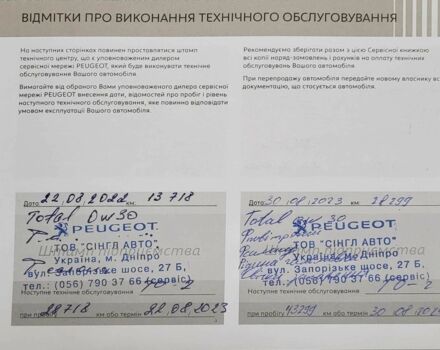 ВІДМІТКИ ПРО ВИКОНАННЯ ТЕХНІЧНОГО ОБСЛУГОВУВАННЯ
На наступних сторінках повинен проставлятися штамп
технічного центру, що є уповноваженим дилером
сервісної мережі PEUGEOT, який буде виконувати технічне
обслуговування Вашого автомобіля.
Вимагайте від обраного Вами уповноваженого дилера сервісної
мережі PEUGEOT внесення дати, відомостей про пробіг і рівень
наступного технічного обслуговування, яке повинно відповідати
умовам експлуатації Вашого автомобіля.
Рекомендуємо зберігати разом з цією Сервісної книжкою
всі копії наряд-замовлень і рахунків на оплату технічних
обслуговувань Вашого автомобіля.
При перепродажу автомобіля передайте новому власнику всі
документацію, що стосується автомобіля.
Дата: 22.08.2022 км: 13 718
Total 0W30
PEUGEOT
Штамп підприємства
ТОВ "СІНГЛ АВТО"
Україна, м. Дніпро
вул. Запорізьке шосе, 27 Б,
тел.: (056) 790 37 66 (сервіс)
Наступне технічне обслуговування
при пробігу 28718 км або термін 22.08.2023
Дата: 30.08.2023 км: 28299
Total 0W30
PEUGEOT
Штамп підприємства
ТОВ "СІНГЛ АВТО"
Україна, м. Дніпро
вул. Запорізьке шосе, 27 Б,
тел.: (056) 790 37 66 (сервіс)
Наступне технічне обслуговування
при пробігу 43299 км або термін 30.08.2024